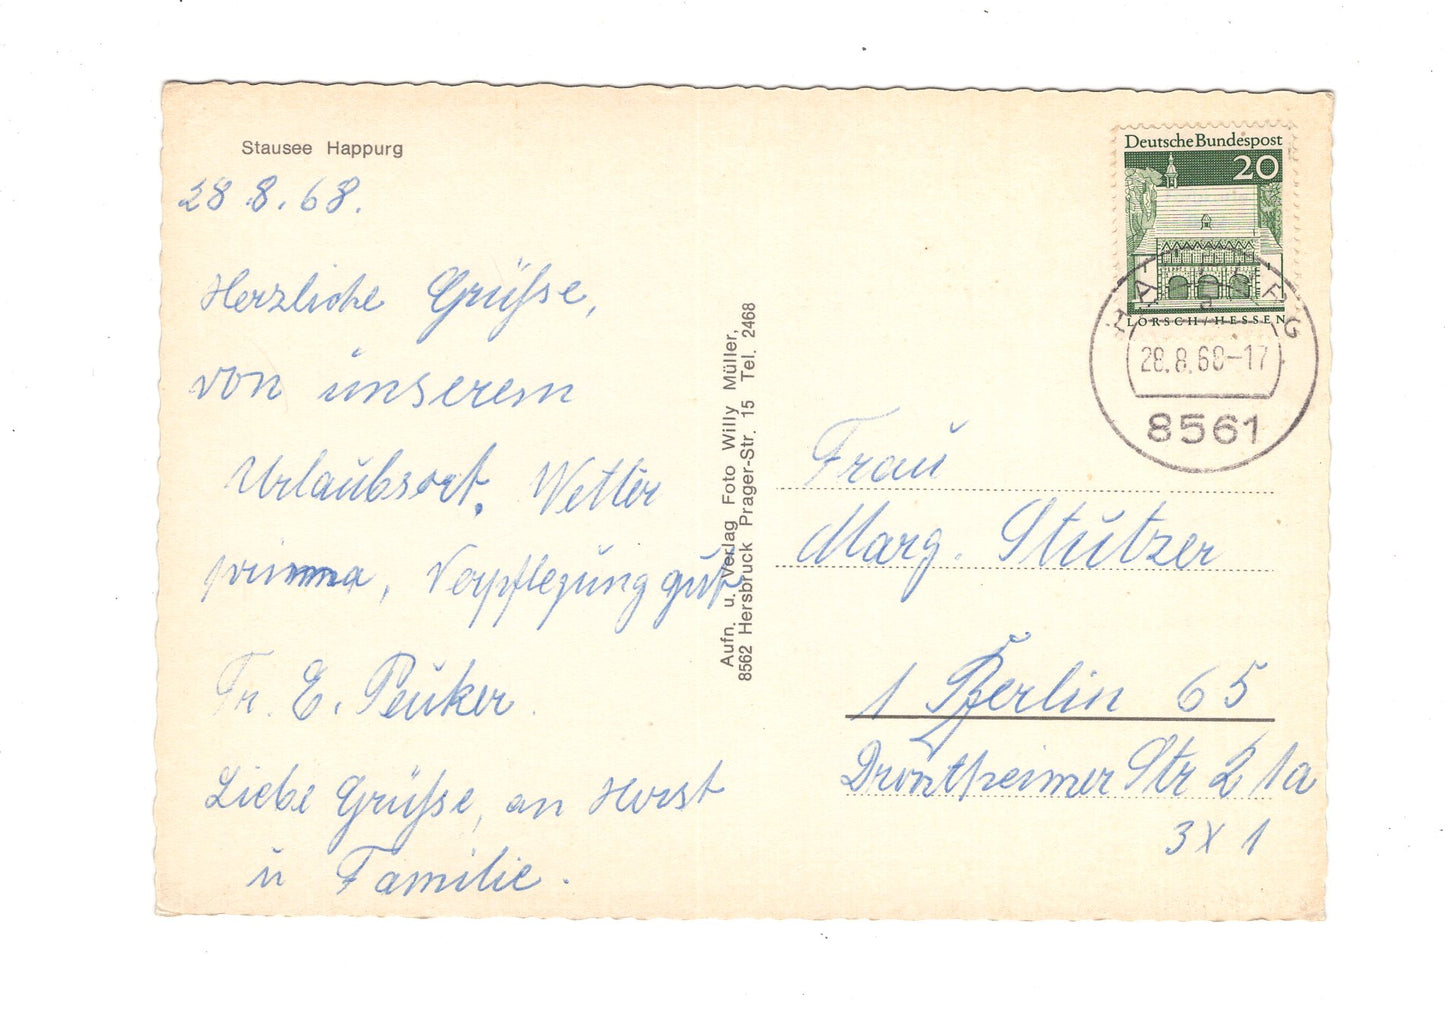 Stausee Happurg
28.8.68.
Herzliche Grüße,
von unserem
Urlaubsort. Wetter
prima, Verpflegung gut
Fr. E. Peuker.
Liebe Grüße, an Horst
u Familie.
Aufn. u. Verlag Foto Willy Müller,
8562 Hersbruck Prager-Str. 15 Tel. 2468
Deutsche Bundespost
20
LORSCH/HESSEN
28.8.68-17
8561
Frau
Marg. Stutzer
1 Berlin 65
Drontheimer Str 21a
3x1